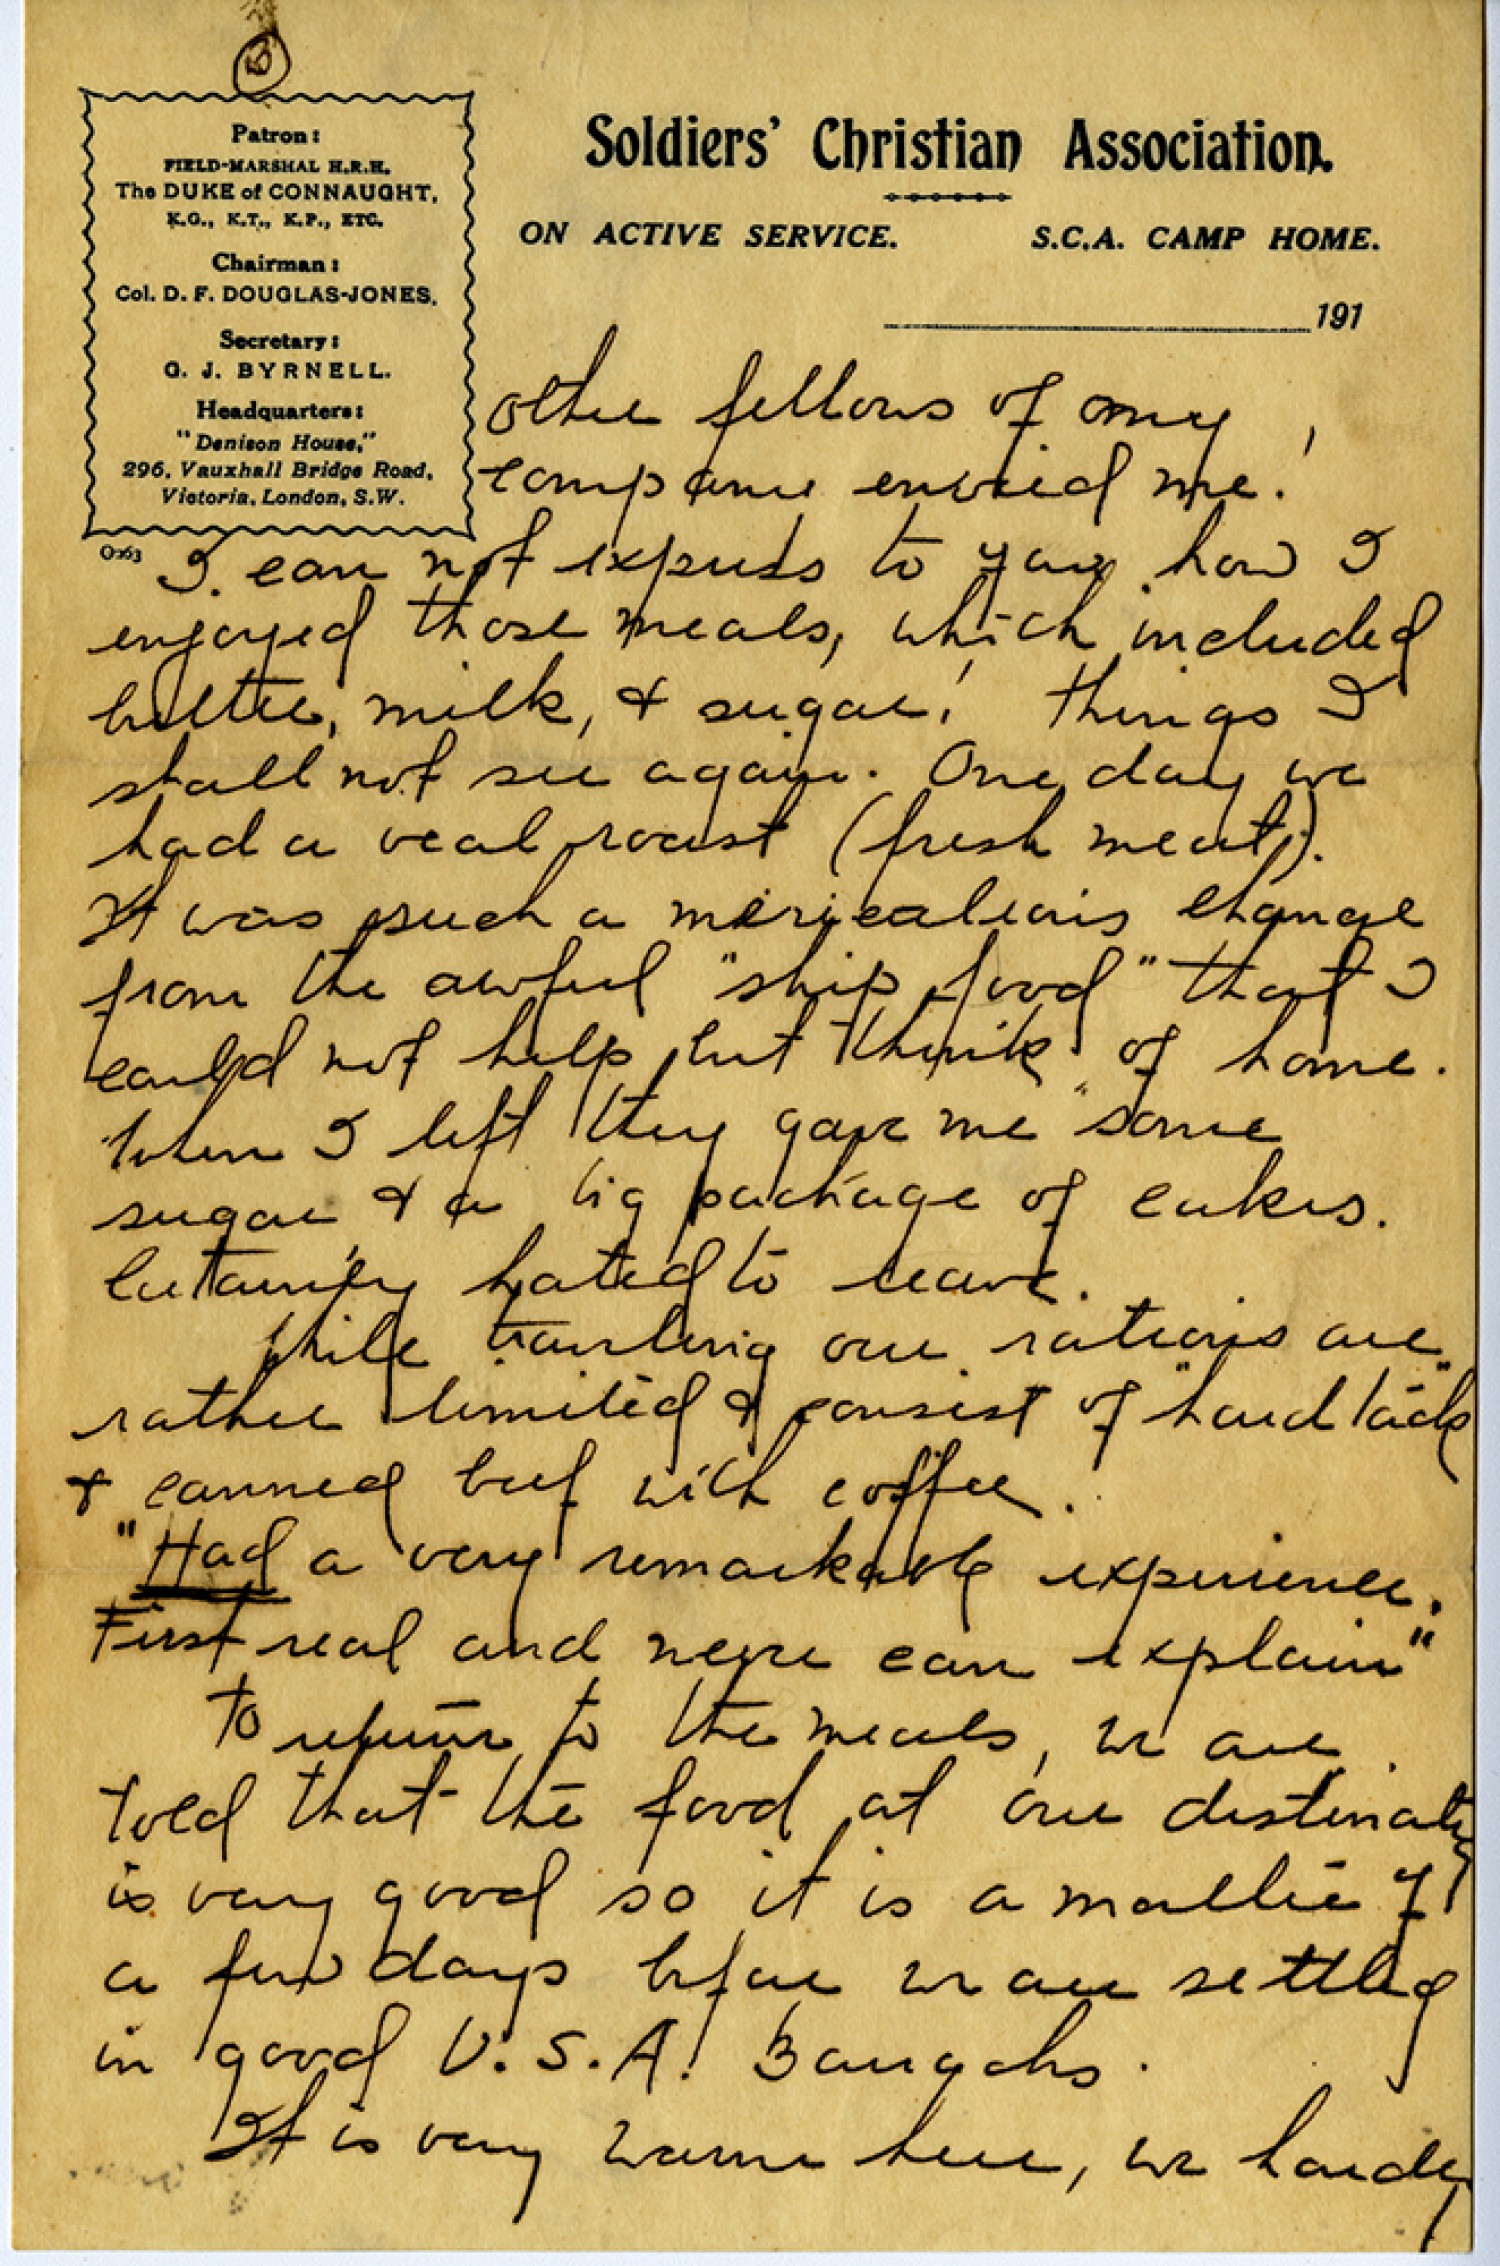 B
Patron:
FIELD-MARSHAL H.R.H.
The DUKE of CONNAUGHT,
K.G., K.T., K.P., ETC.
Chairman:
Col. D. F. DOUGLAS-JONES.
Secretary:
G. J. BYRNELL.
Headquarters:
"Denison House,"
296, Vauxhall Bridge Road,
Victoria, London, S.W.
O263
Soldiers' Christian Association.
ON ACTIVE SERVICE. S.C.A. CAMP HOME.
191
other fellows of my
company envied me!
I can not express to you how I
enjoyed those meals, which included
butter, milk, & sugar! things I
shall not see again. One day we
had a veal roast (fresh meat).
It was such a change
from the awful "ship food" that I
could not help but think of home.
When I left they gave me some
sugar & a big package of cakes.
Certainly hated to leave.
While traveling our rations are
rather limited & consist of "hard tack"
& canned beef with coffee.
"Had a very remarkable experience.
First real and never can explain"
To return to the meals, we are
told that the food at our
is very good so it is a matter of
a few days before we are settled
in good U.S.A.
It is very warm here, we hardly